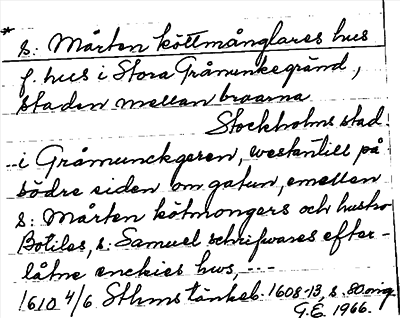 * s: Mårten köttmånglares hus
f. hus i Stora Gråmunkegränd,
staden mellan broarna
Stockholms stad.
--i Gråmunckgrenen, westantill på
södre siden om gatun, emellen
s: Mårten kötmongers och hustro
Botiles, s: Samuel schrifwares efter-
låtne enckies hws, ---
1610 4/6 Sthms tänkeb. 1608-13, s. 80
G.E. 1966.